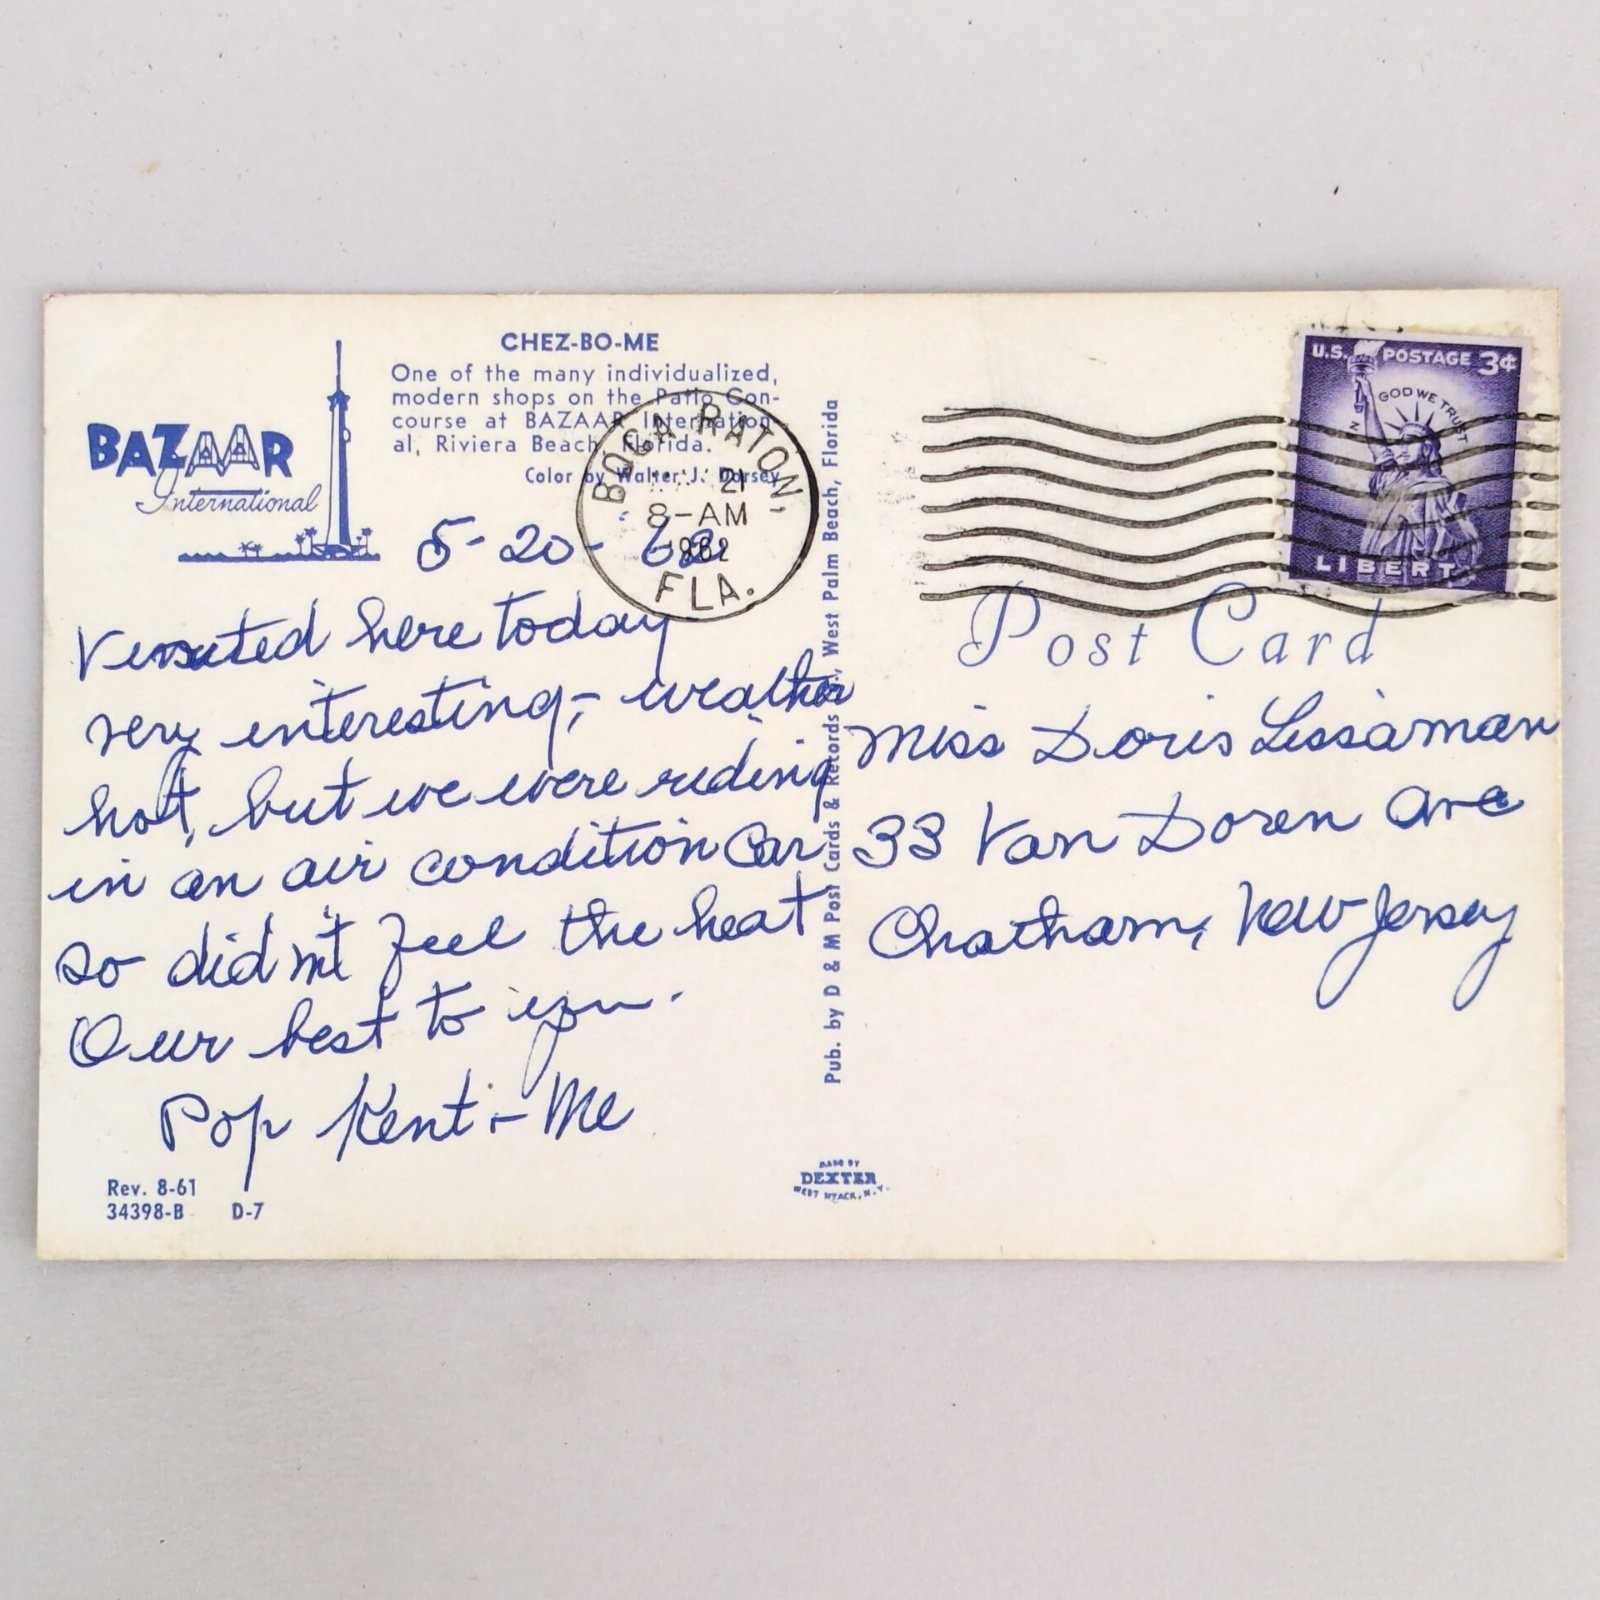 CHEZ-BO-ME
One of the many individualized,
modern shops on the Patio Con-
course at BAZAAR Internation-
al, Riviera Beach, Florida.
Color by Walter J. Dorsey
BAZAAR
International
5-20-62
BOCA RATON,
21
8-AM
1962
FLA.
U.S. POSTAGE 3¢
IN GOD WE TRUST
LIBERTY
Post Card
here today
very interesting, - weather
hot, but we were riding
in an air condition Car
so did n't feel the heat
Our best to you.
Pop Kent - Me
Rev. 8-61
34398-B D-7
Pub. by D & M Post Cards & Records, West Palm Beach, Florida
Miss Doris Lissaman
33 Van Doren Ave
Chatham, New Jersey
MADE BY
DEXTER
WEST NYACK, N.Y.